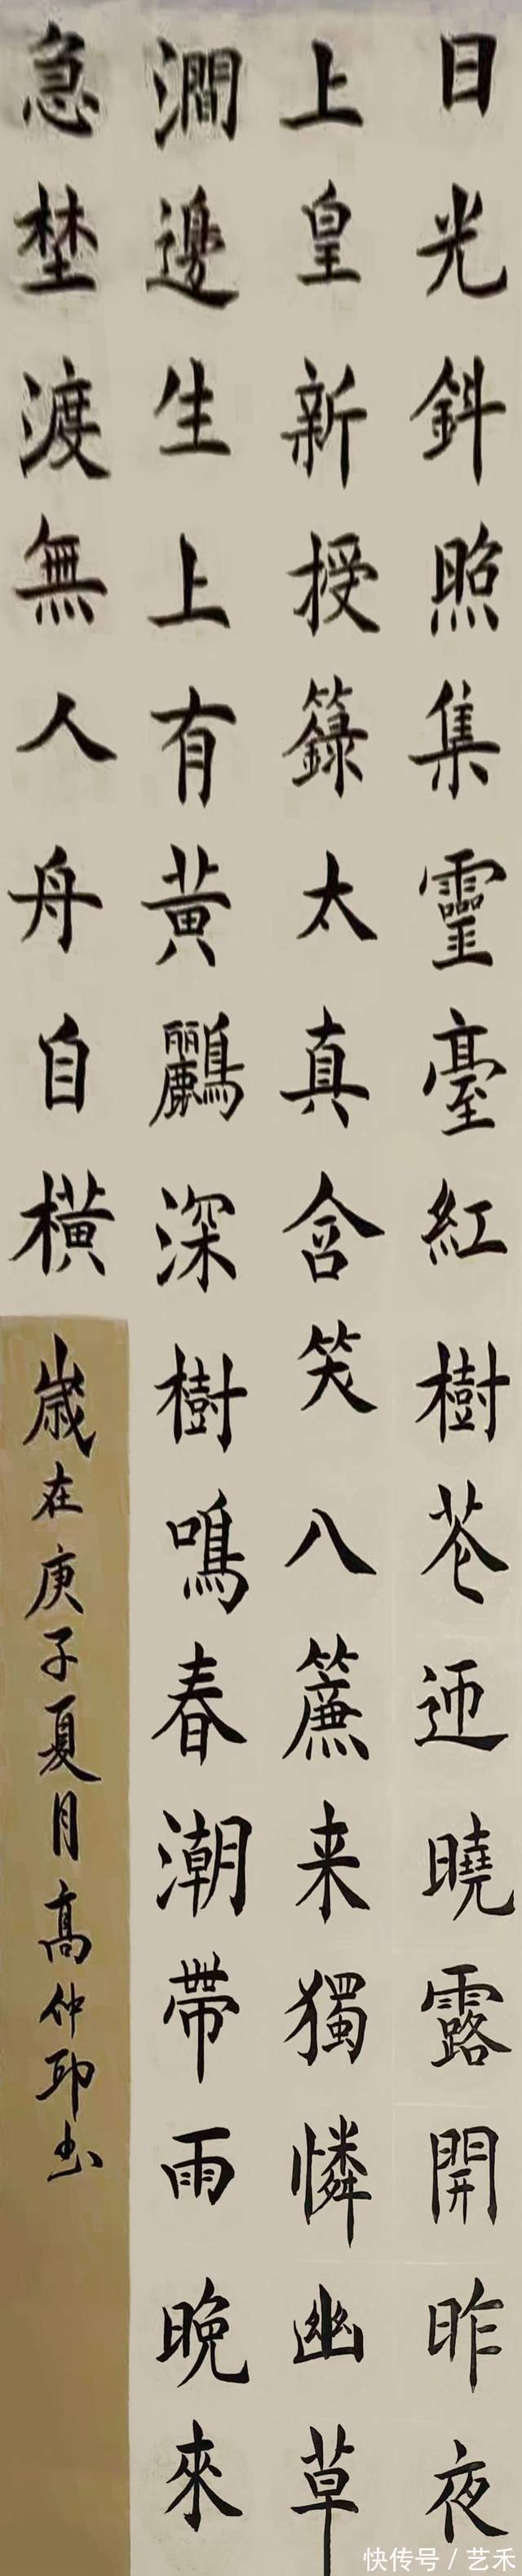 日光斜照集靈臺紅樹花迎曉露開昨夜
上皇新授籙太真含笑八簾来獨憐幽草
澗邊生上有黄鸝深樹鳴春潮帶雨晚來
急埜渡無人舟自橫
歲在庚子夏月高仲印书
快传号 / 艺禾